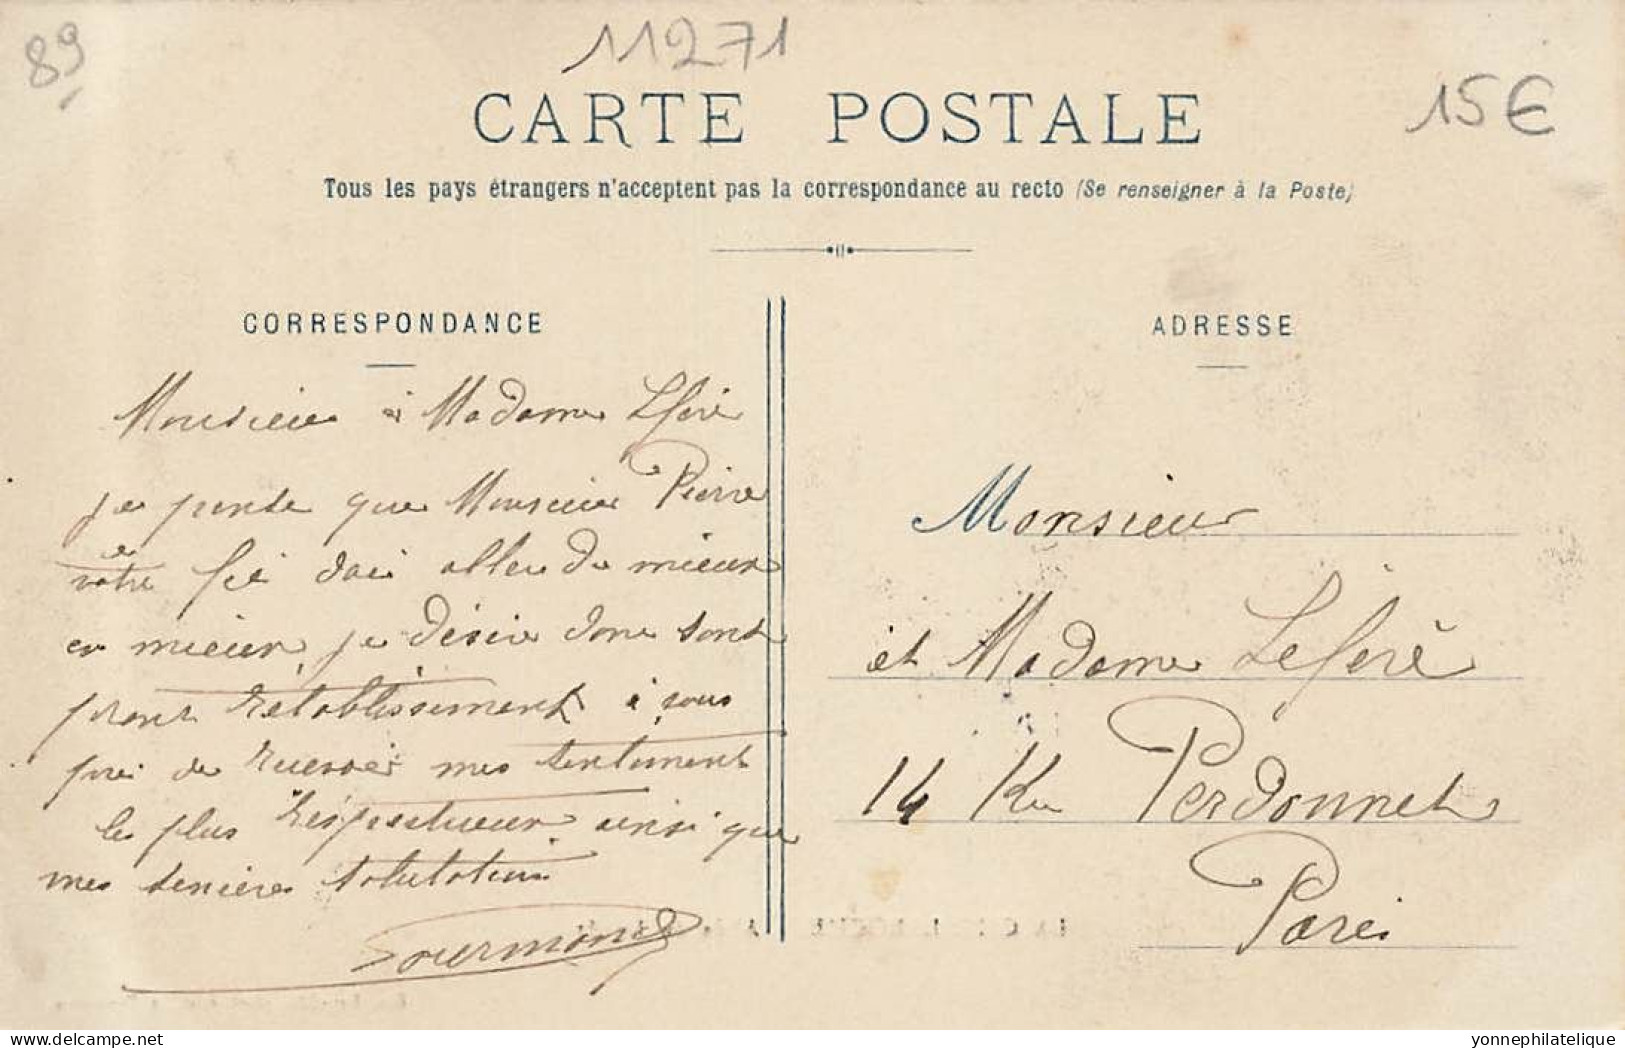 89
11271
15€
CARTE POSTALE
Tous les pays étrangers n'acceptent pas la correspondance au recto (Se renseigner à la Poste)
CORRESPONDANCE
Monsieur à Madame Lferé
je pense que Monsieur Pierre
votre fis doi aller de mieux
en mieux, je désire donc sont
pront rétablissement è vous
pri de recevoir mes sentiment
les plus respectueux ainsi que
mes sincères salutation
Gourmond
ADRESSE
Monsieur
et Madame Leferé
14 Rue Perdonnet
Paris
yonnephilatelique
www.delcampe.net